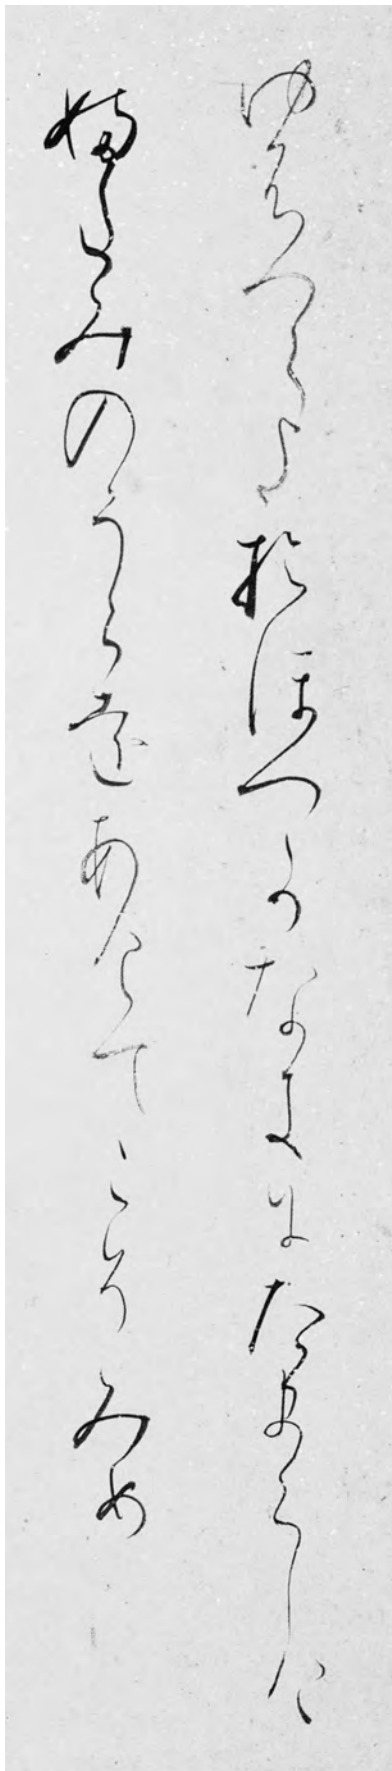 ゆふつくよおほつかなきにたまくしけ
ふたみのうらをあけてこそみめ